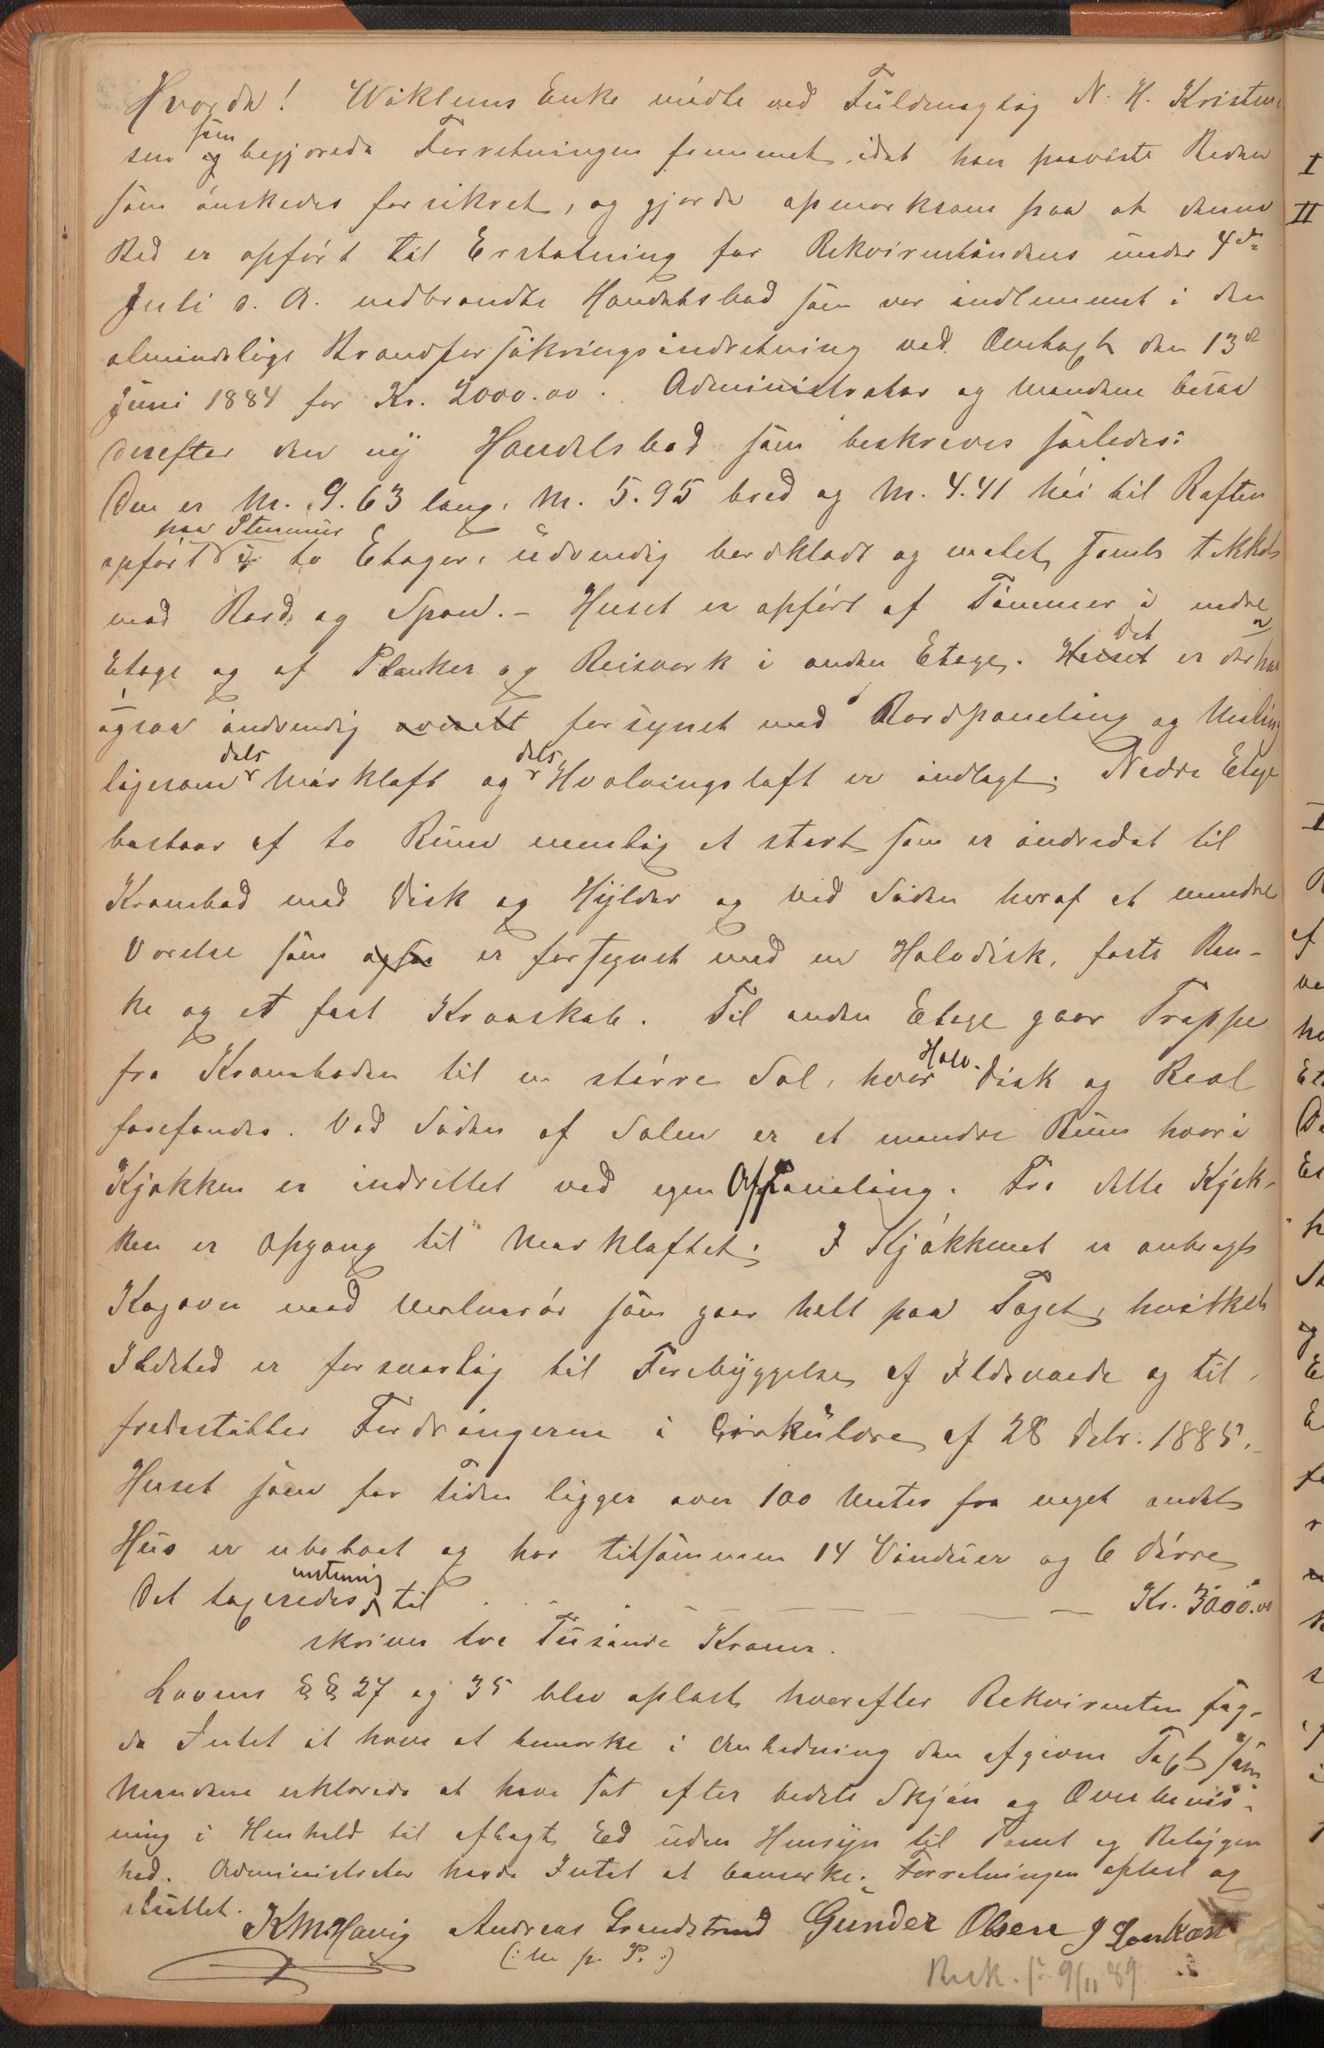 Hvorda! Wiklunds Enke mødte ved Fuldmægtig N. H. Kristen-
sen som begjærede Forretningen fremmet, idet han paaviste Boden
som ønskedes forsikret, og gjorde opmærksom paa at denne
Bod er opført til Erstatning for Rekvirentindens under 4de
Juli d. A. nedbrændte Handelsbod som var indlemmet i den
almindelige Brandforsikringsindretning ved Omtagt den 13de
Juni 1884 for Kr. 2000.00. Administrator og Mændene besaa
derefter den ny Handelsbod som beskreves saaledes:
Den er M. 9.63 lang, M. 5.95 bred og M. 4.41 høi til Raften
opført paa Stenmur i to Etager, udvendig bordklædt og malet, samt tækket
med Bord og Spon. – Huset er opført af Tømmer i nedre
Etage og af Planker og Reisværk i anden Etage. Det er derhos
ogsaa indvendig overalt forsynet med Bordpaneling og Maling
ligesom dels Mørkloft og dels Hvælvingsloft er indlagt. Nedre Etage
bestaar af to Rum nemlig et stort som er indredet til
Krambod med Disk og Hylder og ved Siden heraf et mindre
Værelse som ogsaa er forsynet med en Halvdisk, faste Bæn-
ke og et fast Kraaskab. Til anden Etage gaar Trappe
fra Kramboden til en større Sal, hvor Halv-Disk og Reol
forefindes. Ved Siden af Salen er et mindre Rum hvori
Kjøkken er indrettet ved egen Afpaneling. Fra dette Kjøk-
ken er Opgang til Mørkloftet. I Kjøkkenet er anbragt
Kogovn med Malmrør som gaar helt paa Taget, hvilket
Ildsted er forsvarlig til Forebyggelse af Ildsvaade og til-
fredsstiller Fordringerne i Cirkulære af 28 Debr. 1885.
Huset som for Tiden ligger over 100 Meter fra noget andet
Hus er ubeboet og har tilsammen 14 Vinduer og 6 Dørre
Det taxeredes enstemig til . . . . — — — — Kr. 3000.00
skriver tre Tusinde Kroner.
Lovens §§ 27 og 35 blev oplæst, hvorefter Rekvirenten sag-
de Intet at have at bemærke i Anledning den afgivne Taxt som
Mændene erklærede at have sat efter bedste Skjøn og Overbevis-
ning i Henhold til aflagt Ed uden Hensyn til Tomt og Beliggen
hed. Administrator havde Intet at bemærke. Forretningen oplæst og
sluttet.
K M Havig Andreas Grandstrand Gunder Olsen J Lenkast
(: M. p. P. :)
Besk. s. 9/11 89.